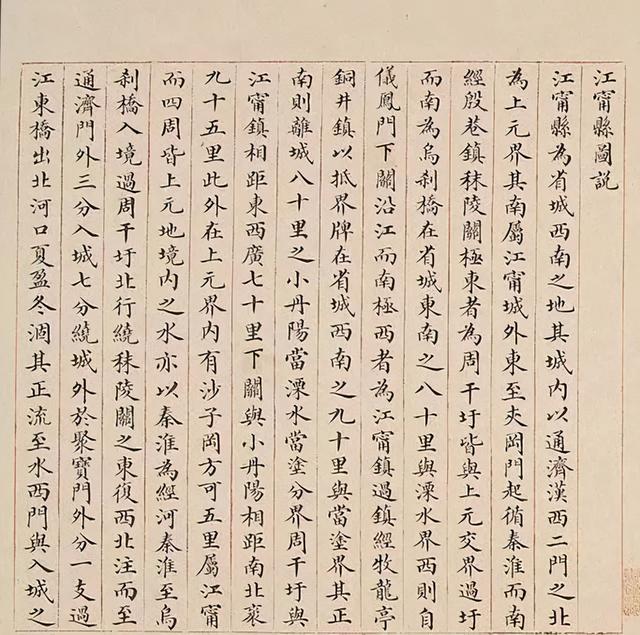 江甯縣圖説
江甯縣為省城西南之地其城内以通濟漢西二門之北
為上元界其南屬江甯城外東至夾岡門起循秦淮而南
經殷巷鎮秣陵關極東者為周干圩皆與上元交界過圩
而南為烏刹橋在省城東南之八十里與溧水界西則自
儀鳳門下關沿江而南極西者為江甯鎮過鎮經牧龍亭
銅井鎮以抵界牌在省城西南之九十里與當塗界其正
南則離城八十里之小丹陽當溧水當塗分界周干圩與
江甯鎮相距東西廣七十里下關與小丹陽相距南北袤
九十五里此外在上元界内有沙子岡方可五里屬江甯
而四周皆上元地境内之水亦以秦淮為經河秦淮至烏
刹橋入境過周干圩北行繞秣陵關之東復西北注而至
通濟門外三分入城七分繞城外於聚寶門外分一支過
江東橋出北河口夏盈冬涸其正流至水西門與入城之